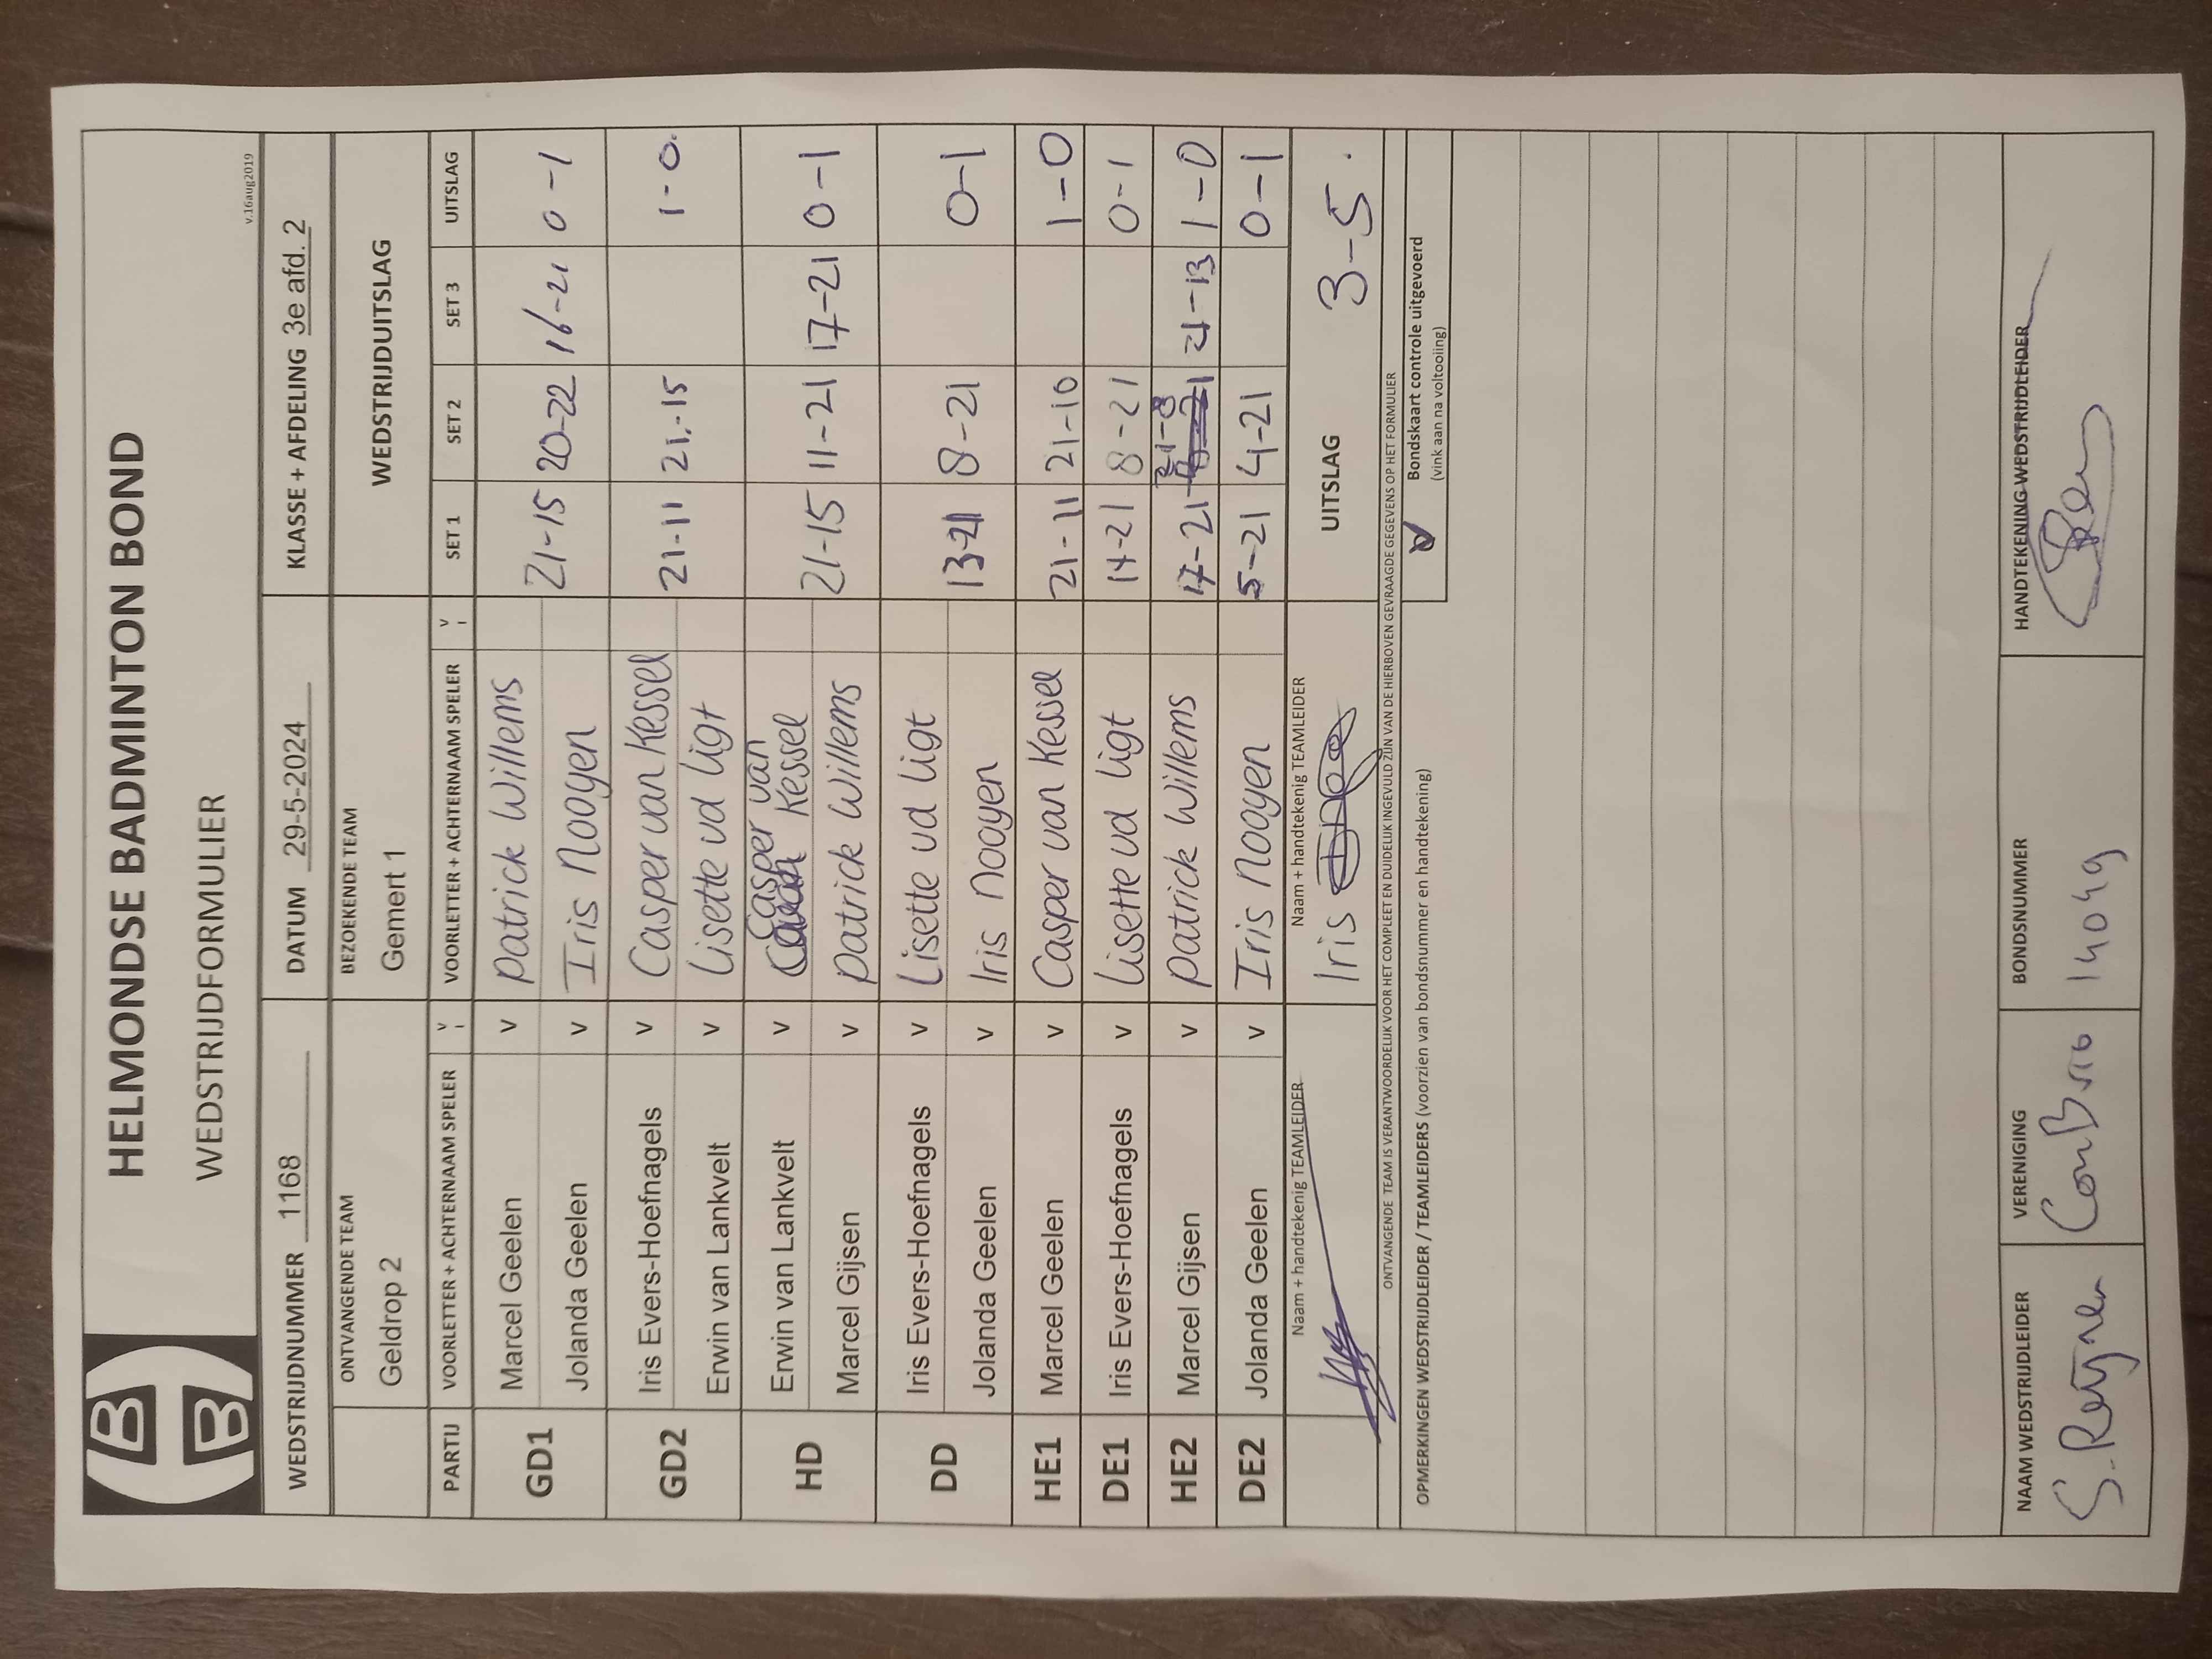 HELMONDSE BADMINTON BOND
WEDSTRIJDFORMULIER
v.16aug2019
WEDSTRIJDNUMMER 1168 DATUM 29-5-2024 KLASSE + AFDELING 3e afd. 2
ONTVANGENDE TEAM BEZOEKENDE TEAM WEDSTRIJDUITSLAG
Geldrop 2 Gemert 1
PARTIJ VOORLETTER + ACHTERNAAM SPELER V I VOORLETTER + ACHTERNAAM SPELER V I SET 1 SET 2 SET 3 UITSLAG
GD1 Marcel Geelen v Patrick Willems
Jolanda Geelen v Iris Nooyen 21-15 20-22 16-21 0-1
GD2 Iris Evers-Hoefnagels v Casper van Kessel
Erwin van Lankvelt v Lisette vd Ligt 21-11 21-15 1-0
HD Erwin van Lankvelt v Casper van Kessel
Marcel Gijsen v Patrick Willems 21-15 11-21 17-21 0-1
DD Iris Evers-Hoefnagels v Lisette vd Ligt
Jolanda Geelen v Iris Nooyen 13-21 8-21 0-1
HE1 Marcel Geelen v Casper van Kessel 21-11 21-10 1-0
DE1 Iris Evers-Hoefnagels v Lisette vd Ligt 14-21 8-21 0-1
HE2 Marcel Gijsen v Patrick Willems 17-21 21-8 21-13 1-0
DE2 Jolanda Geelen v Iris Nooyen 5-21 4-21 0-1
Naam + handtekenig TEAMLEIDER Naam + handtekenig TEAMLEIDER
Iris UITSLAG 3-5
ONTVANGENDE TEAM IS VERANTWOORDELIJK VOOR HET COMPLEET EN DUIDELIJK INGEVULD ZIJN VAN DE HIERBOVEN GEVRAAGDE GEGEVENS OP HET FORMULIER
OPMERKINGEN WEDSTRIJDLEIDER / TEAMLEIDERS (voorzien van bondsnummer en handtekening)
Bondskaart controle uitgevoerd
(vink aan na voltooiing)
NAAM WEDSTRIJDLEIDER VERENIGING BONDSNUMMER HANDTEKENING WEDSTRIJDLEIDER
ConBrio 14049